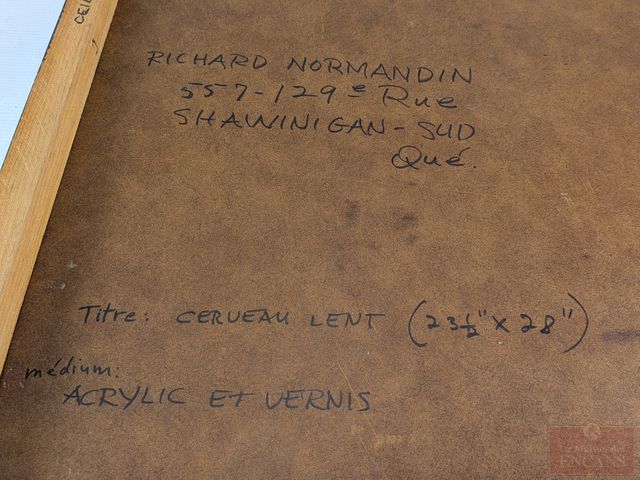 RICHARD NORMANDIN
557-129e Rue
SHAWINIGAN-SUD
Qué.
Titre: CERVEAU LENT (23½" x 28")
médium:
ACRYLIC ET VERNIS
La Maison des
ENCANS